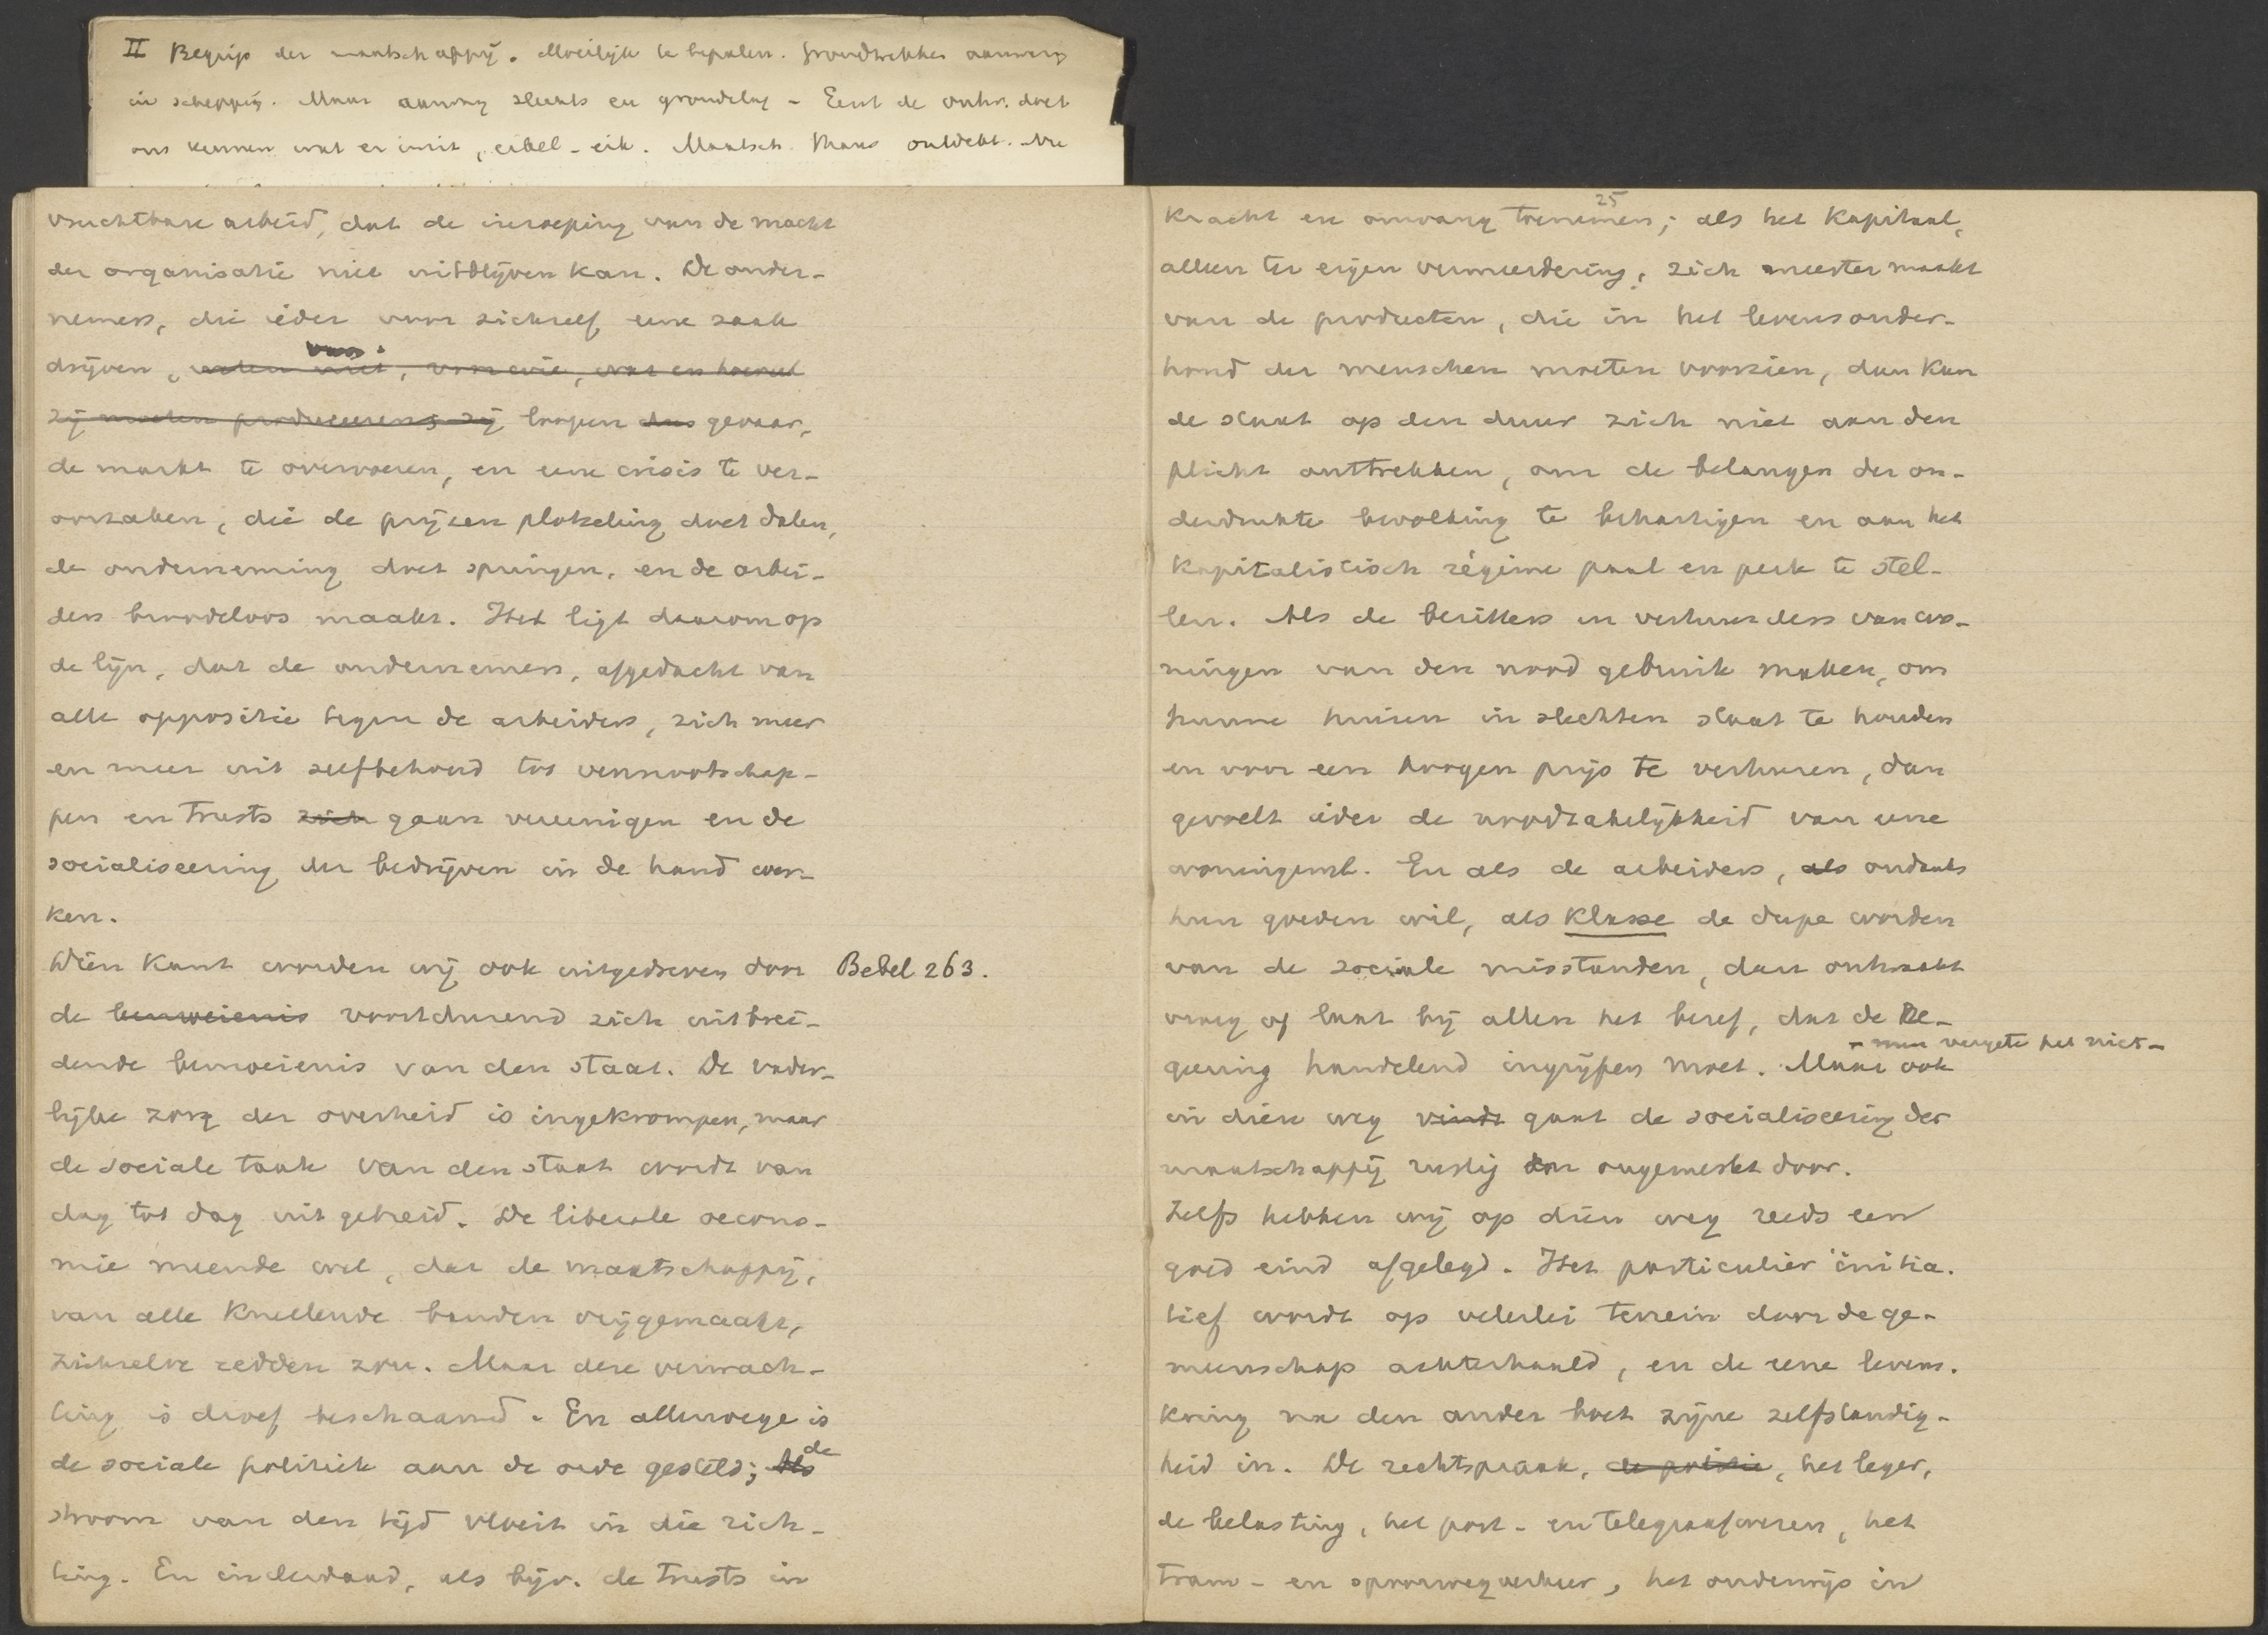 II Begrip der maatschappij. Moeilijk te bepalen. Grondtrekken aanwezig
in schepping. Maar aanleg slechts en grondslag – Eerst de ontw. doet
ons kennen wat er in zit, eikel – eik. Maatsch.
vruchtbare arbeid, dat de inroeping van de macht
der organisatie niet uitblijven kan. De onder-
nemers, die ieder voor zichzelf eene zaak
drijven, weten niet, voor wie, wat en hoeveel
zij moeten produceeren; zij loopen dus gevaar,
de markt te overvoeren, en eene crisis te ver-
oorzaken, die de prijzen plotseling doet dalen,
de onderneming doet springen, en de arbei-
ders broodeloos maakt. Het ligt daarom op
de lijn, dat de ondernemers, afgedacht van
alle oppositie tegen de arbeiders, zich meer
en meer uit zelfbehoud tot vennootschap-
pen en trusts zich gaan vereenigen en de
socialiseering der bedrijven in de hand wer-
ken.
Dien kant worden wij ook uitgedreven door Bebel 263.
de bemoeienis voortdurend zich uitbrei-
dende bemoeienis van den staat. De vader-
lijke zorg der overheid is ingekrompen, maar
de sociale taak van den staat wordt van
dag tot dag uitgebreid. De liberale oecono-
mie meende wel, dat de maatschappij,
van alle knellende banden vrijgemaakt,
zichzelve redden zou. Maar deze verwach-
ting is droef beschaamd. En allerwege is
de sociale politiek aan de orde gesteld; Als de
stroom van den tijd vloeit in die rich-
ting. En inderdaad, als bijv. de trusts in
25
kracht en omvang toenemen; als het kapitaal,
alleen ter eigen vermeerdering, zich meester maakt
van de producten, die in het levensonder-
houd der menschen moeten voorzien, dan kan
de staat op den duur zich niet aan den
plicht onttrekken, om de belangen der on-
derdrukte bevolking te behartigen en aan het
kapitalistisch régime paal en perk te stel-
len. Als de bezitters en verhuurders van wo-
ningen van den nood gebruik maken, om
hunne huizen in slechten staat te houden
en voor een hoogen prijs te verhuren, dan
gevoelt ieder de noodzakelijkheid van eene
woningwet. En als de arbeiders, als ondanks
hun goeden wil, als klasse de dupe worden
van de sociale misstanden, dan ontwaakt
vroeg of laat bij allen het besef, dat de Re-
– men vergete het niet –
geering handelend ingrijpen moet. Maar ook
in dien weg vindt gaat de socialiseering der
maatschappij rustig en ongemerkt door.
Zelfs hebben wij op dien weg reeds een
goed eind afgelegd. Het particulier initia-
tief wordt op velerlei terrein door de ge-
meenschap achterhaald, en de eene levens-
kring na den ander boet zijne zelfstandig-
heid in. De rechtspraak, de politie, het leger,
de belasting, het post- en telegraafwezen, het
tram- en spoorwegverkeer, het onderwijs in